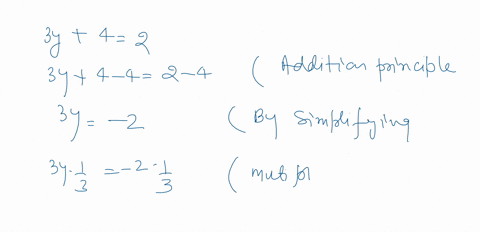 3y + 4 = 2
3y + 4 - 4 = 2 - 4 ( Addition principle
3y = -2 ( By simplifying
3y · 1/3 = -2 · 1/3 (